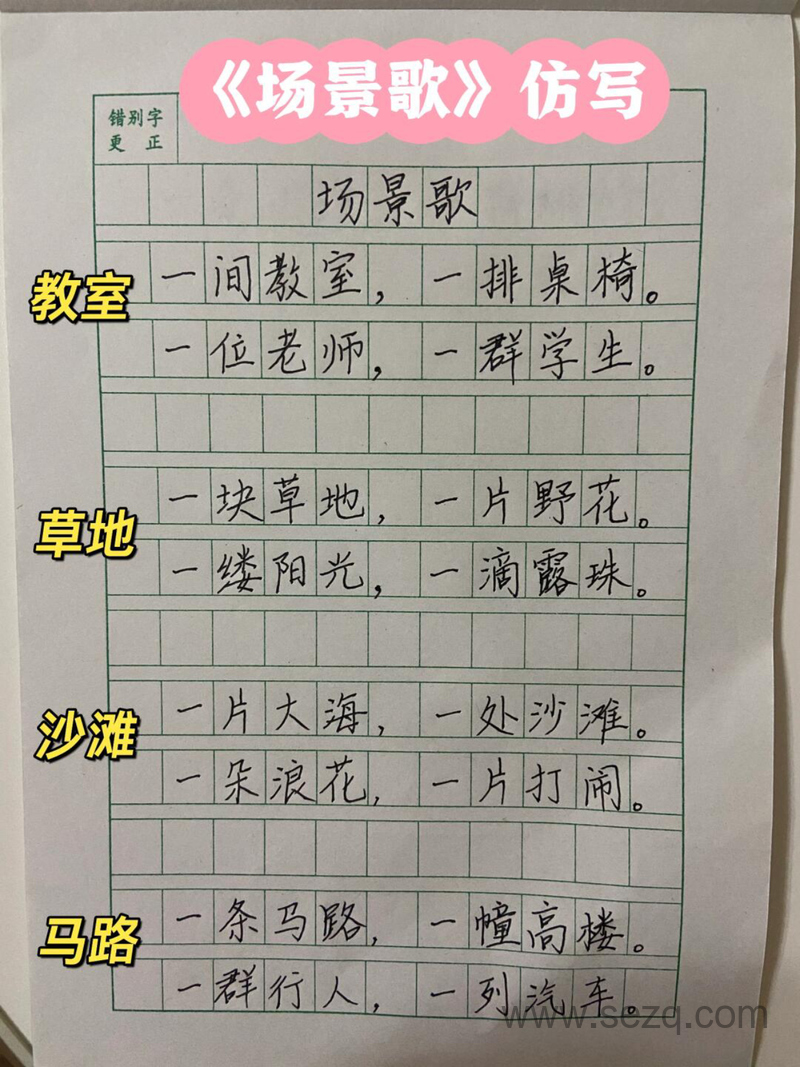 《场景歌》仿写
错别字
更正
场景歌
教室
一间教室，一排桌椅。
一位老师，一群学生。
草地
一块草地，一片野花。
一缕阳光，一滴露珠。
沙滩
一片大海，一处沙滩。
一朵浪花，一片打闹。
马路
一条马路，一幢高楼。
一群行人，一列汽车。
www.sezq.com